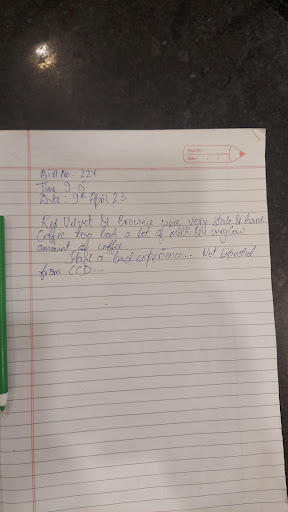 Page No.
Date: / /
Bill No. 221
Time 9.15
Date: 9th April 23
Red Velvet & Brownie were very stale & hard
Coffee too had a lot of milk & very low
amount of coffee
Had a bad experience... Not Expected
from CCD...